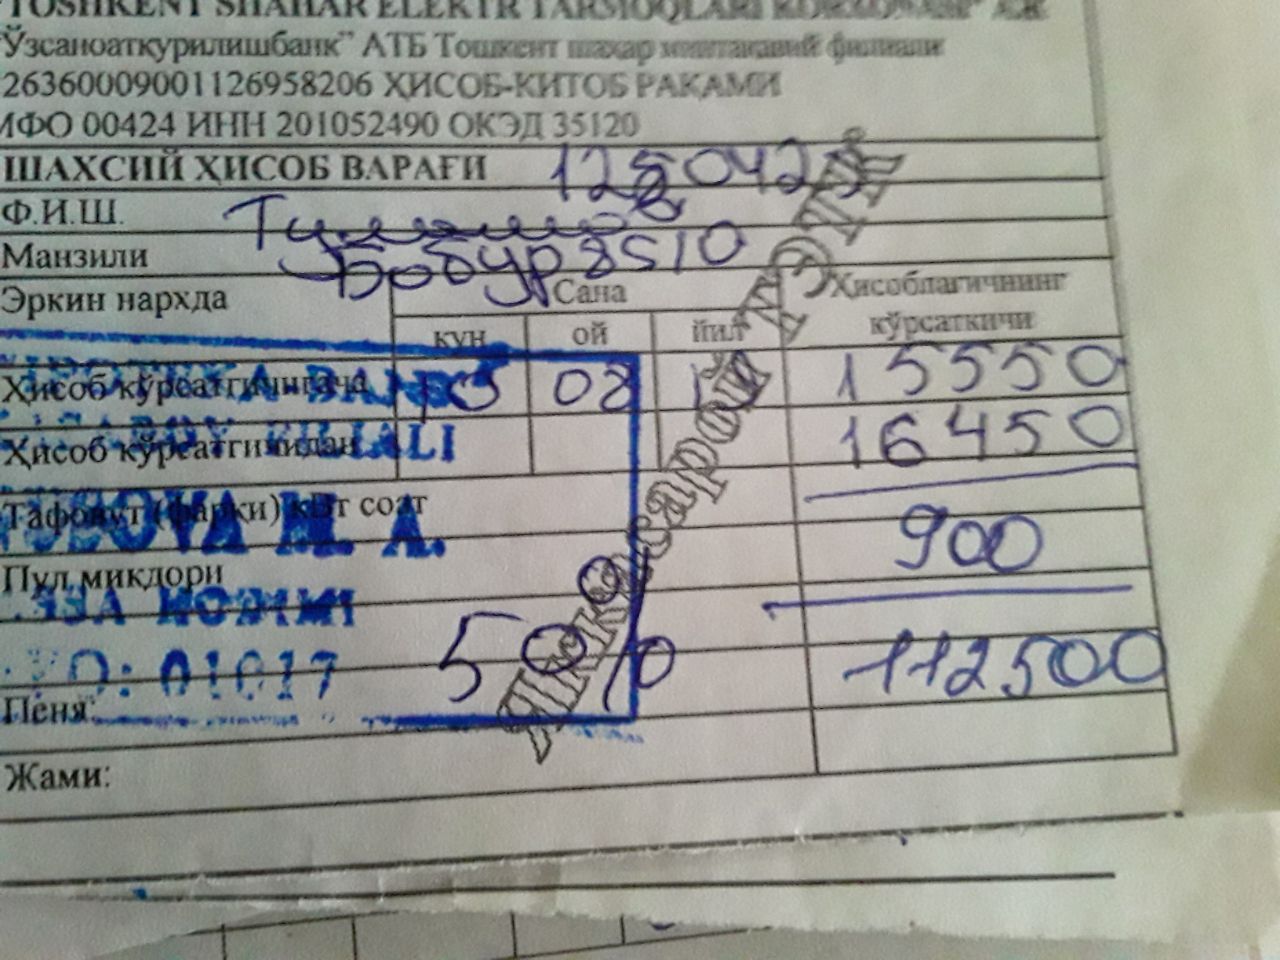 TOSHKENT SHAHAR ELEKTR TARMOQLARI KORXONASI" АЖ
"Ўзсаноатқурилишбанк" АТБ Тошкент шаҳар минтақавий филиали
26360009001126958206 ҲИСОБ-КИТОБ РАҚАМИ
ИФО 00424 ИНН 201052490 ОКЭД 35120
ШАХСИЙ ҲИСОБ ВАРАҒИ
Ф.И.Ш.
Манзили Бобур 8 5 10
Эркин нархда Сана Ҳисоблагичнинг кўрсаткичи
кун ой йил
Ҳисоб кўрсатгичигача 08 15550
Ҳисоб кўрсатгичидан 16450
Тафовут (фарқи) кВт соат
900
Пул миқдори
112500
Пеня
Жами:
Яккасарой ТЭТК
FILIALI
A.
01017